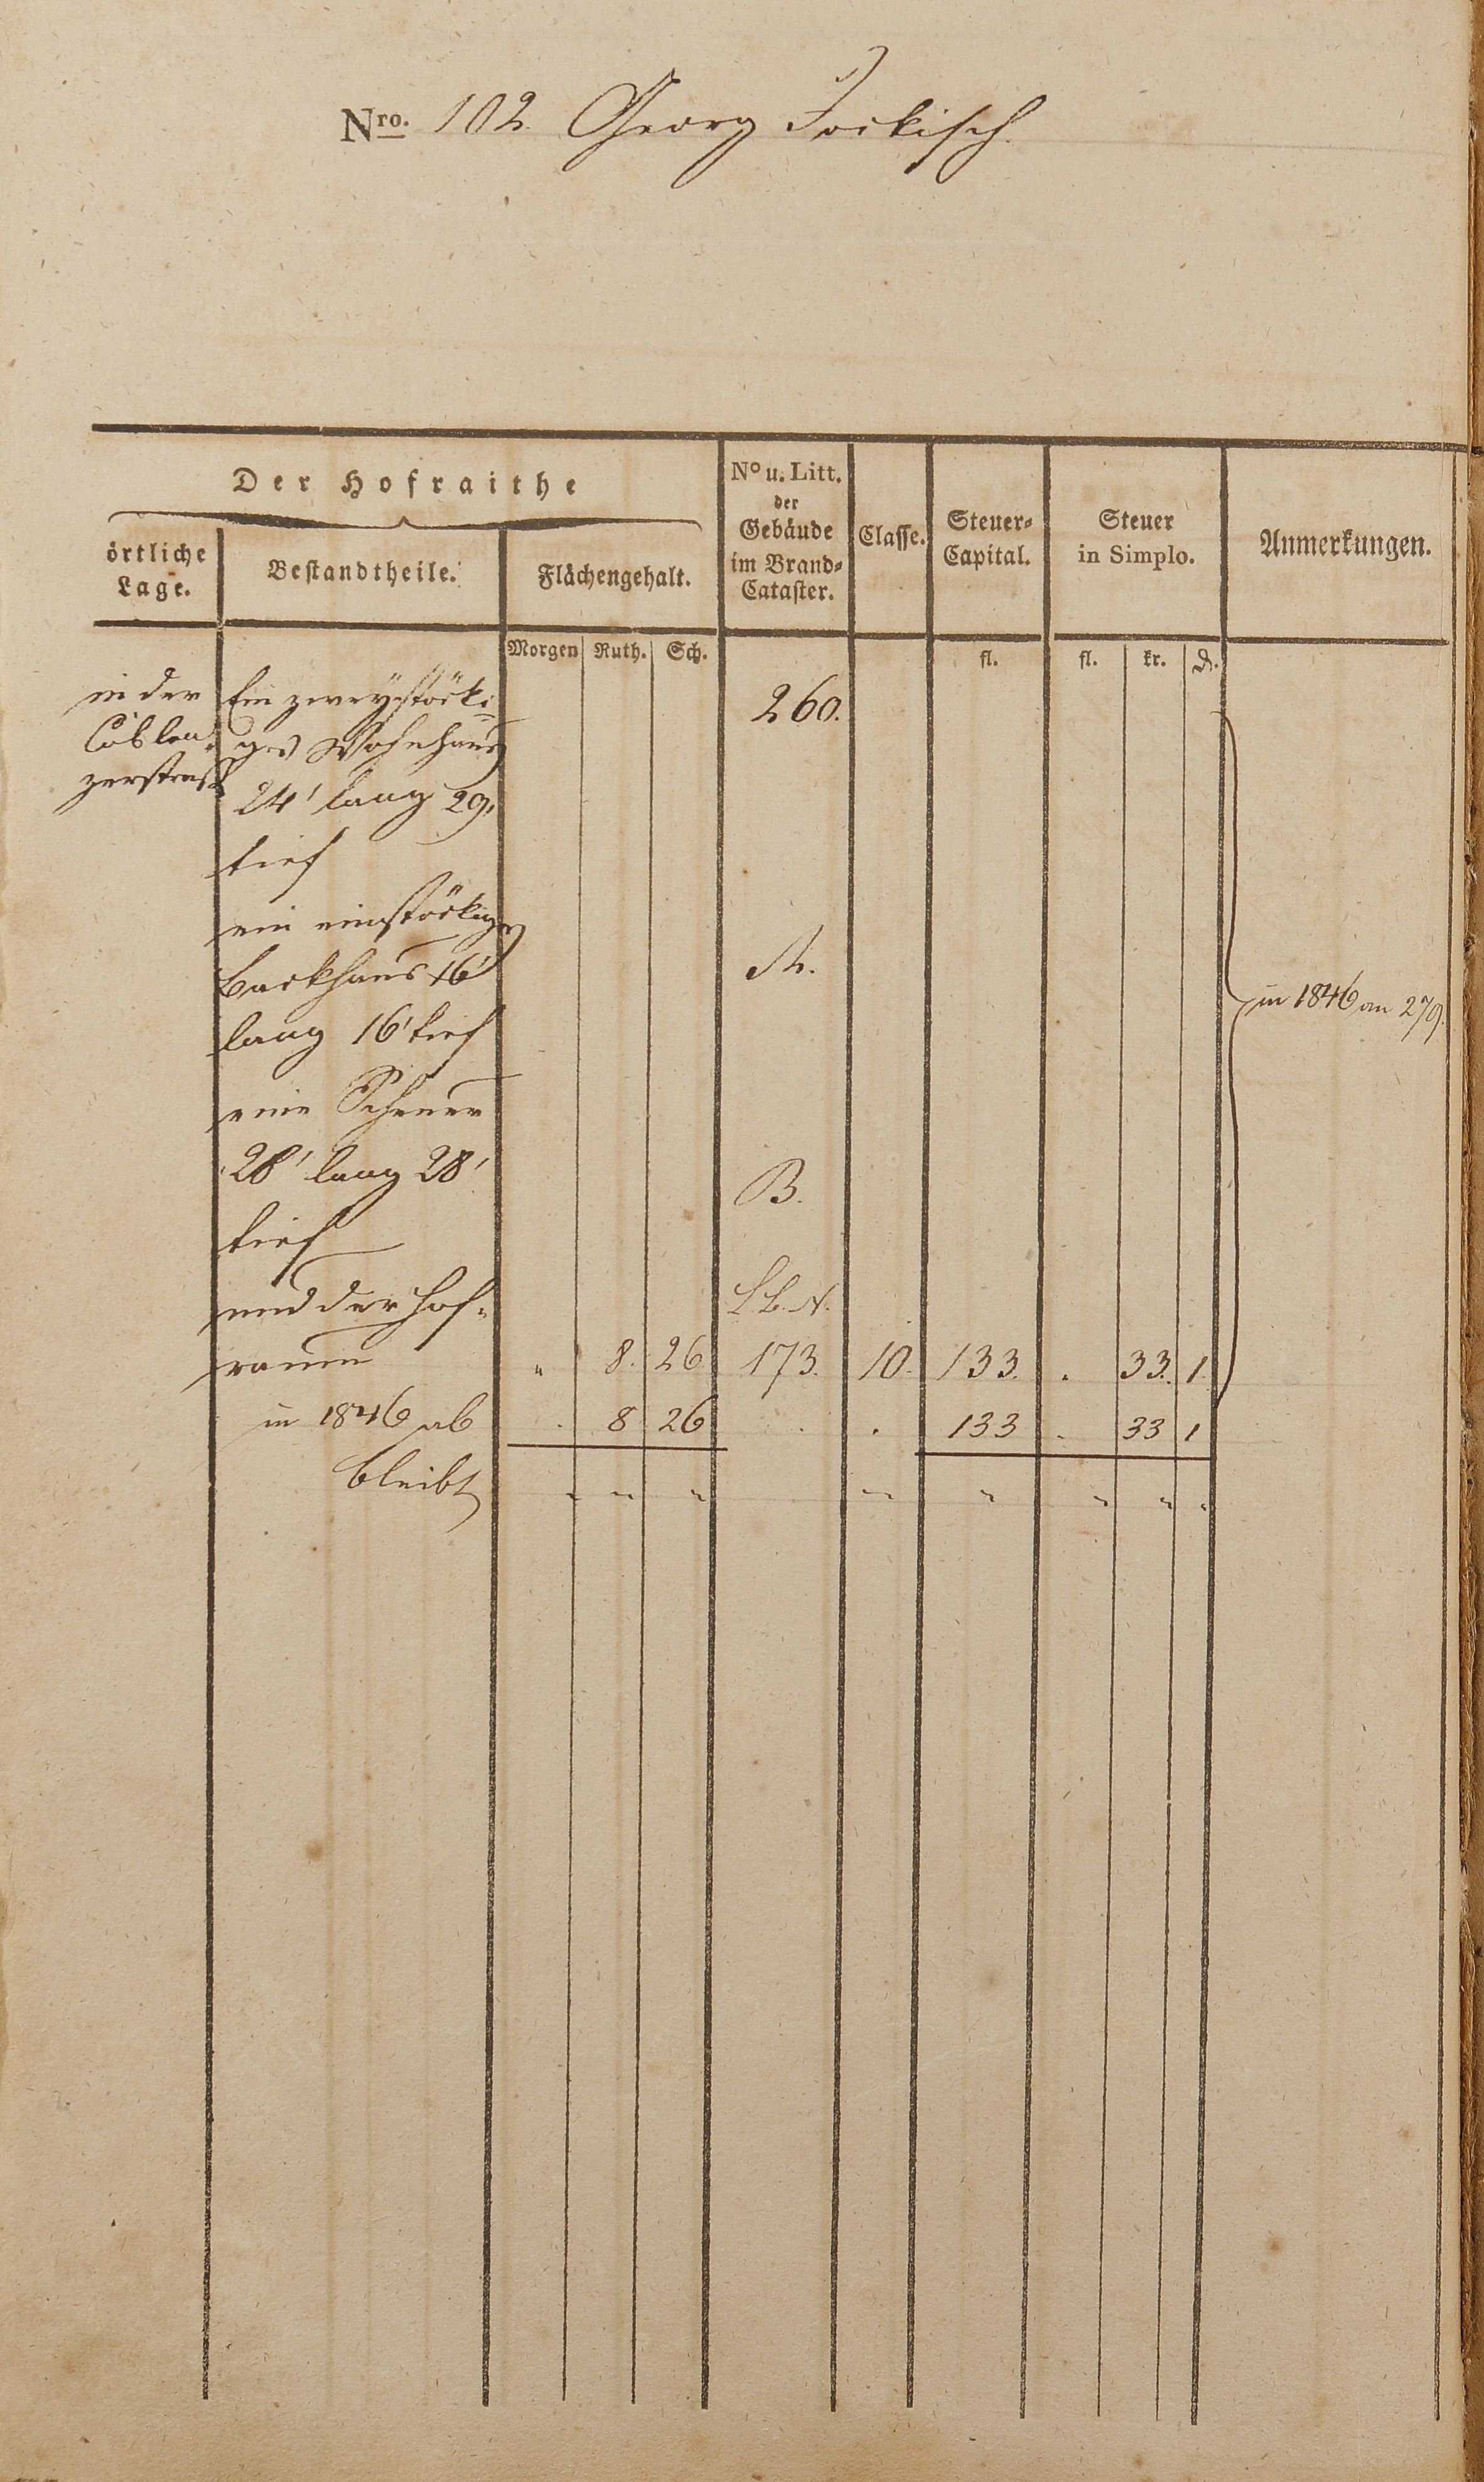 Nro. 102. Georg Jockisch.
Der Hofraithe
örtliche Lage.
Bestandtheile.
Flächengehalt.
No u. Litt. der Gebäude im Brand-Cataster.
Classe.
Steuer-Capital.
Steuer in Simplo.
Anmerkungen.
Morgen Ruth. Sch. fl. fl. kr. d.
in der Ein zweystöcki- 260.
Coblen- ges Wohnhaus
zerstraß 24' lang 29'
tief
ein einstöckiges
Backhaus 16' A.
lang 16' tief in 1846 an 279.
eine Scheuer
28' lang 28' B.
tief
und der Hof- L.B.N.
raum " 8. 26 173. 10. 133. . 33. 1.
in 1846 ab . 8 26 . . 133 . 33 1
bleibt " " " " " " " "